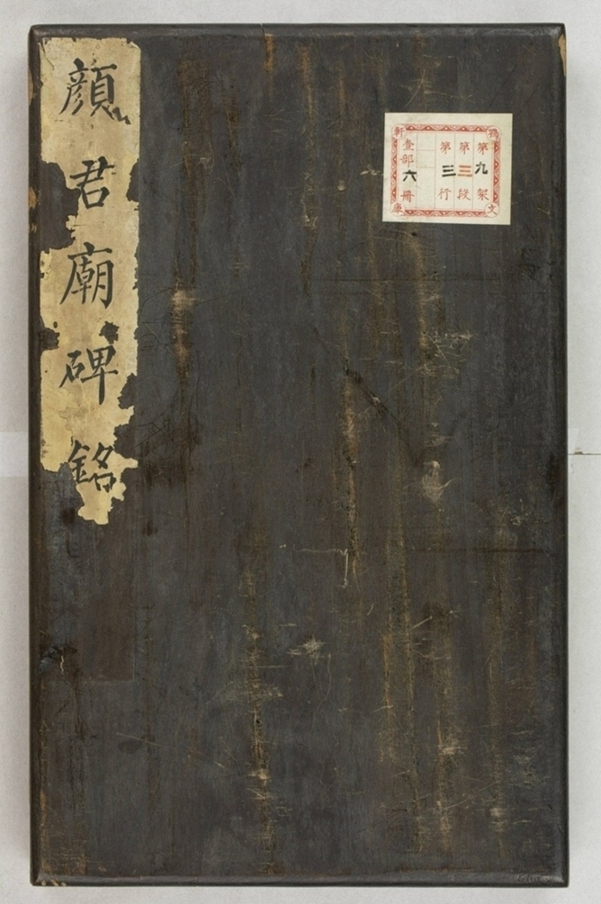 顔君廟碑銘
第九架
第三段
第三行
壹部六冊